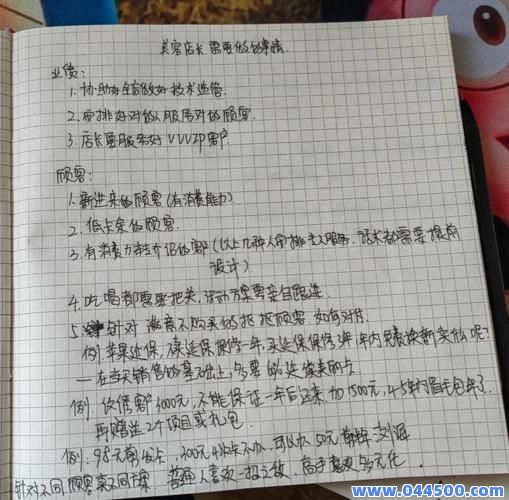 美容店长需要做的事情.
业债:
1. 协助好全店做好技术监管.
2. 安排好对的人服务对的顾客.
3. 店长要服务好VVVIP客户
顾客:
1. 新进来的顾客(有消费能力)
2. 低卡余的顾客.
3. 有消费力 的 (以上几种人安排主人服务, 话术都需要提前
设计)
4. 吃喝都需要把关, 活动方案要亲自跟进.
5. 针对 准备不购买的抵抗顾客, 如何对付.
例: 苹果延保, 不续延保保修一年, 买延保保修3年, 年内免费换新 买什么呢?
— 在当天销售的基础上, 多要 延续美丽卡.
例2. 优惠客户3000元, 不能保证一年后过来, 加1500元, 4-5年内眉毛包年了.
再赠送2个项目或礼包.
例3. 98元剪发卡, 300元 卡不办, 可以办50元剪
针对不同顾客来不同方案. 普通人喜欢一招之敌, 高手喜欢多元化.
www.044500.com